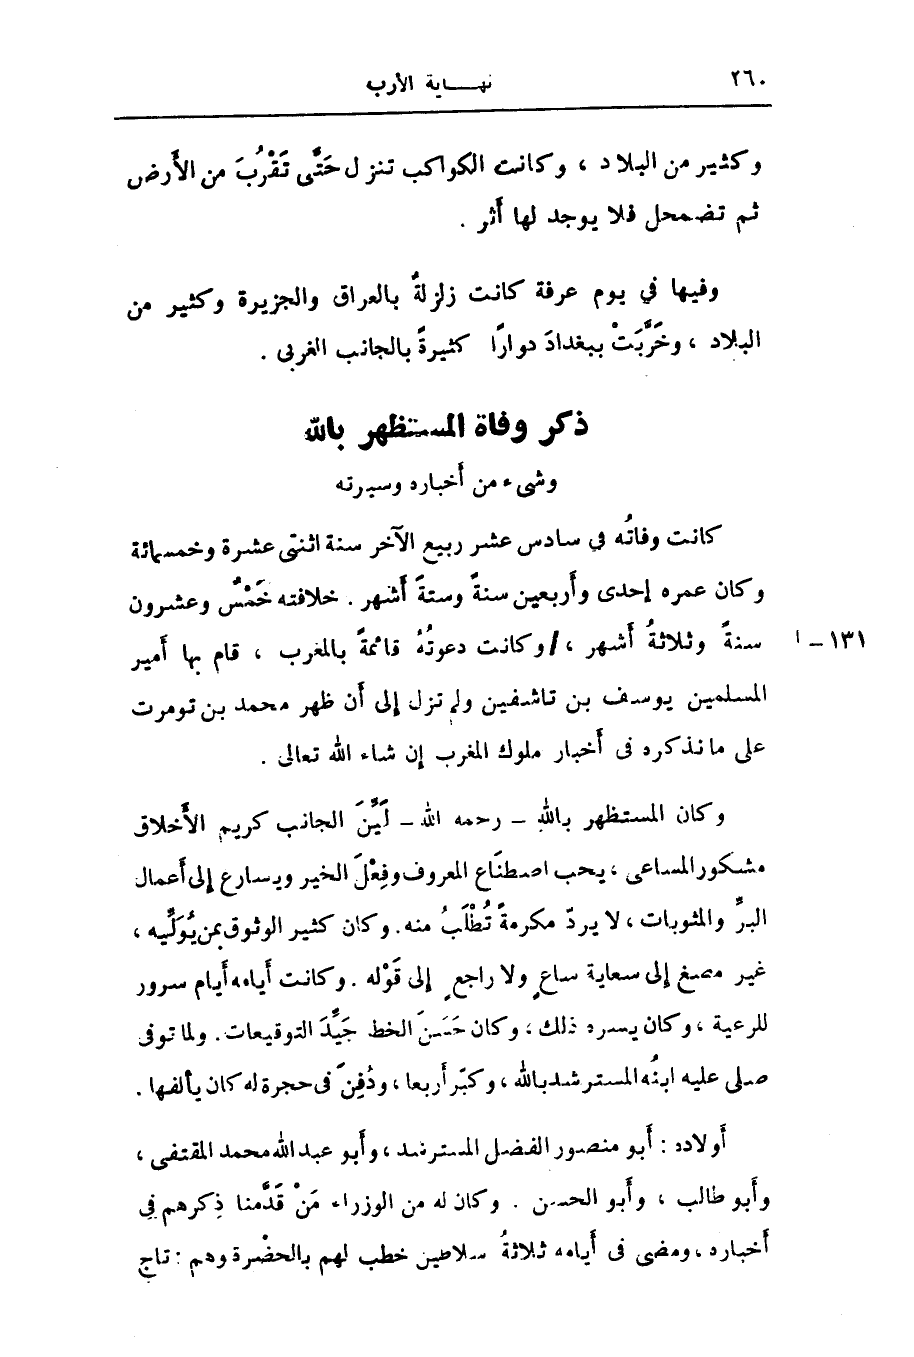 ٢٦٠ نهـــاية الأرب
وكثير من البلاد ، وكانت الكواكب تنزل حَتَّى تَقْرُبَ من الأَرض
ثم تضمحل فلا يوجد لها أَثر .
وفيها في يوم عرفة كانت زلزلةٌ بالعراق والجزيرة وكثير من
البلاد ، وخَرَّبَتْ ببغدادَ دوارًا كثيرةً بالجانب الغربى .
ذكر وفاة المستظهر بالله
وشىء من أَخباره وسيرته
كانت وفاتُه فى سادس عشر ربيع الآخر سنة اثنتى عشرة وخمسمائة
وكان عمره إحدى وأَربعين سنةً وستةً أَشهر . خلافته خَمْسٌ وعشرون
سنةً وثلاثةُ أَشهر ، / وكانت دعوتُهُ قائمةً بالمغرب ، قام بها أَمير
١٣١ – ا
المسلمين يوسف بن تاشفين ولم تزل إلى أَن ظهر محمد بن تومرت
على ما نذكره فى أَخبار ملوك المغرب إن شاء الله تعالى .
وكان المستظهر بالله – رحمه الله – لَيِّنَ الجانب كريم الأَخلاق
مشكور المساعى ، يحب اصطنَاع المعروف وفِعْلَ الخير ويسارع إلى أَعمال
البرِّ والمثوبات ، لا يردّ مكرمةً تُطْلَبُ منه . وكان كثير الوثوق بمن يُوَلِّيه ،
غير مصغ إلى سعاية ساعٍ ولا راجعٍ إلى قَوْله . وكانت أَيامه أَيام سرور
للرعية ، وكان يسره ذلك ، وكان حَسَنَ الخط جَيِّدَ التوقيعات . ولما توفى
صلى عليه ابنُه المسترشد بالله ، وكبّر أَربعا ، ودُفِنَ فى حجرة له كان يأْلفها .
أَولاده : أَبو منصور الفضل المسترشد ، وأَبو عبد الله محمد المقتفى ،
وأَبو طالب ، وأَبو الحسن . وكان له من الوزراء مَنْ قَدَّمنا ذِكرهم فِى
أَخباره ، ومضى فى أَيامه ثلاثةُ سلاطين خطب لهم بالحضْرة وهم : تاج